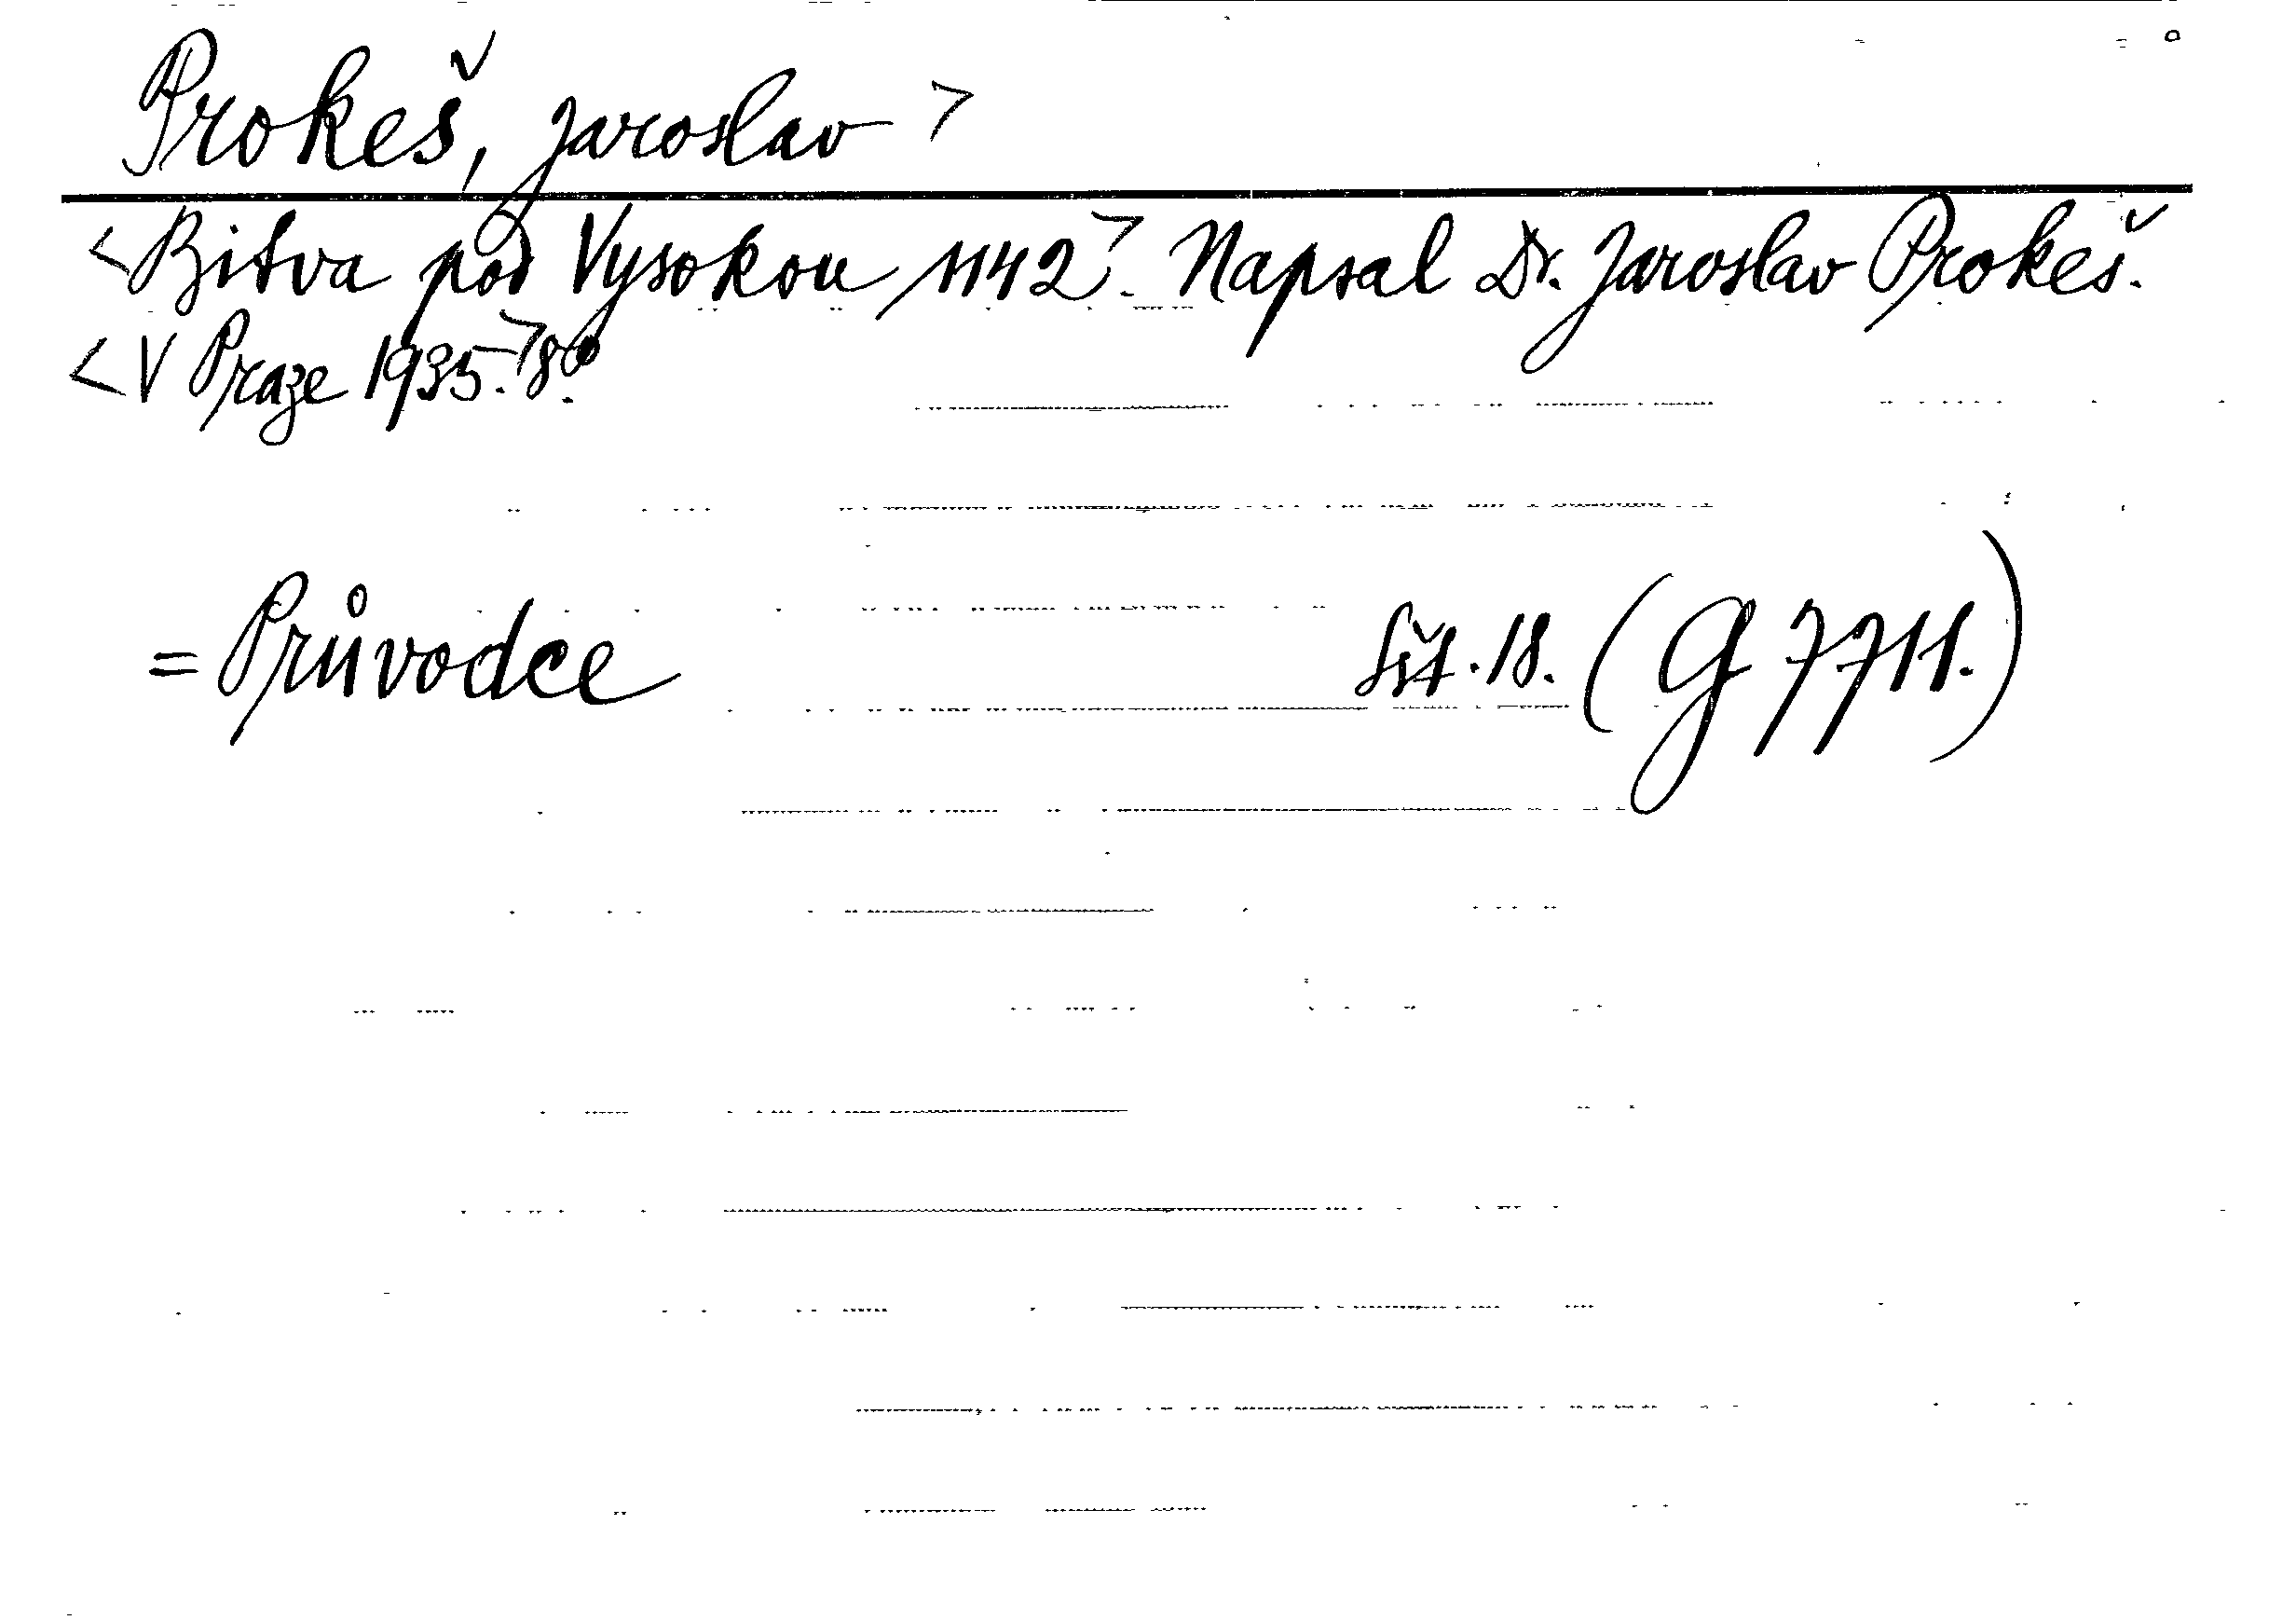 Prokeš, Jaroslav >
<Bitva pod Vysokou 1142>. Napsal Dr. Jaroslav Prokeš.
<V Praze 1935.> 8°.
= Průvodce Síť. 18. (G 7711.)